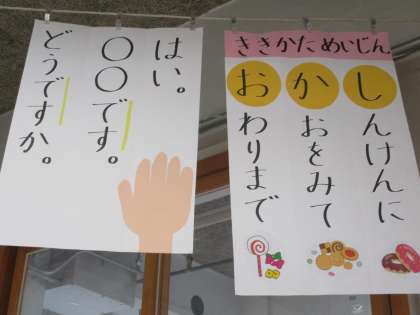 ききかためいじん
しんけんに
かおをみて
おわりまで
はい。
〇〇です。
どうですか。